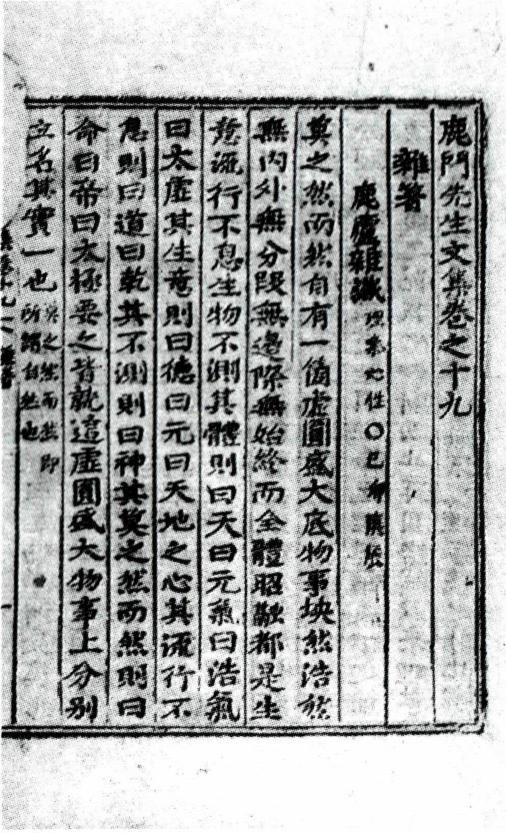 鹿門先生文集卷之十九
雜著
鹿廬雜識 理氣心性〇己卯陳疑
莫之然而然自有一箇虛圓盛大底物事坱然浩然
無內外無分段無邊際無始終而全體昭融都是生
意流行不息生物不測其體則曰天曰元氣曰浩氣
曰太虛其生意則曰德曰元曰天地之心其流行不
息則曰道曰乾其不測則曰神其莫之然而然則曰
命曰帝曰太極要之皆就這虛圓盛大物事上分別
立名其實一也 莫之然而然即所謂自然也